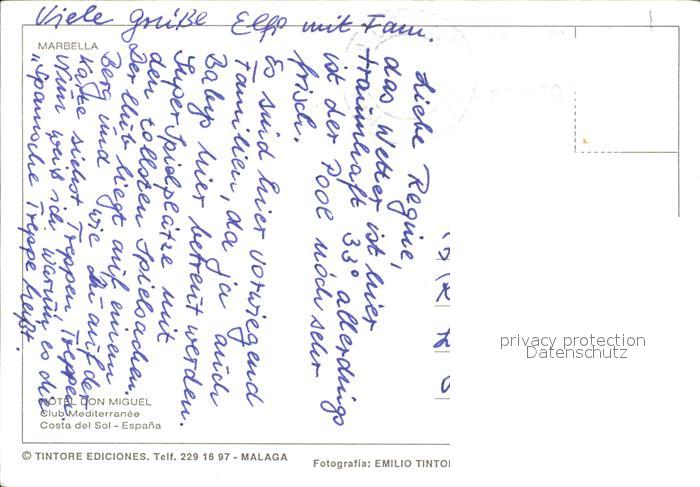 Viele Grüße Elfs mit Fam.
MARBELLA
Liebe Regine,
das Wetter ist hier
traumhaft 33° allerdings
ist der Pool noch sehr
frisch.
Es sind hier vorwiegend
Familien, da ja auch
Babys hier betreut werden.
Super Spielplätze mit
den tollsten Spielsachen.
Der Club liegt auf einem
Berg und wie Du auf der
Karte siehst Treppen Treppen.
Nun weiß ich warum es die
"Spanische Treppe heißt.
HOTEL DON MIGUEL
Club Mediterranée
Costa del Sol - España
© TINTORE EDICIONES. Telf. 229 16 97 - MALAGA
Fotografía: EMILIO TINTO
privacy protection
Datenschutz